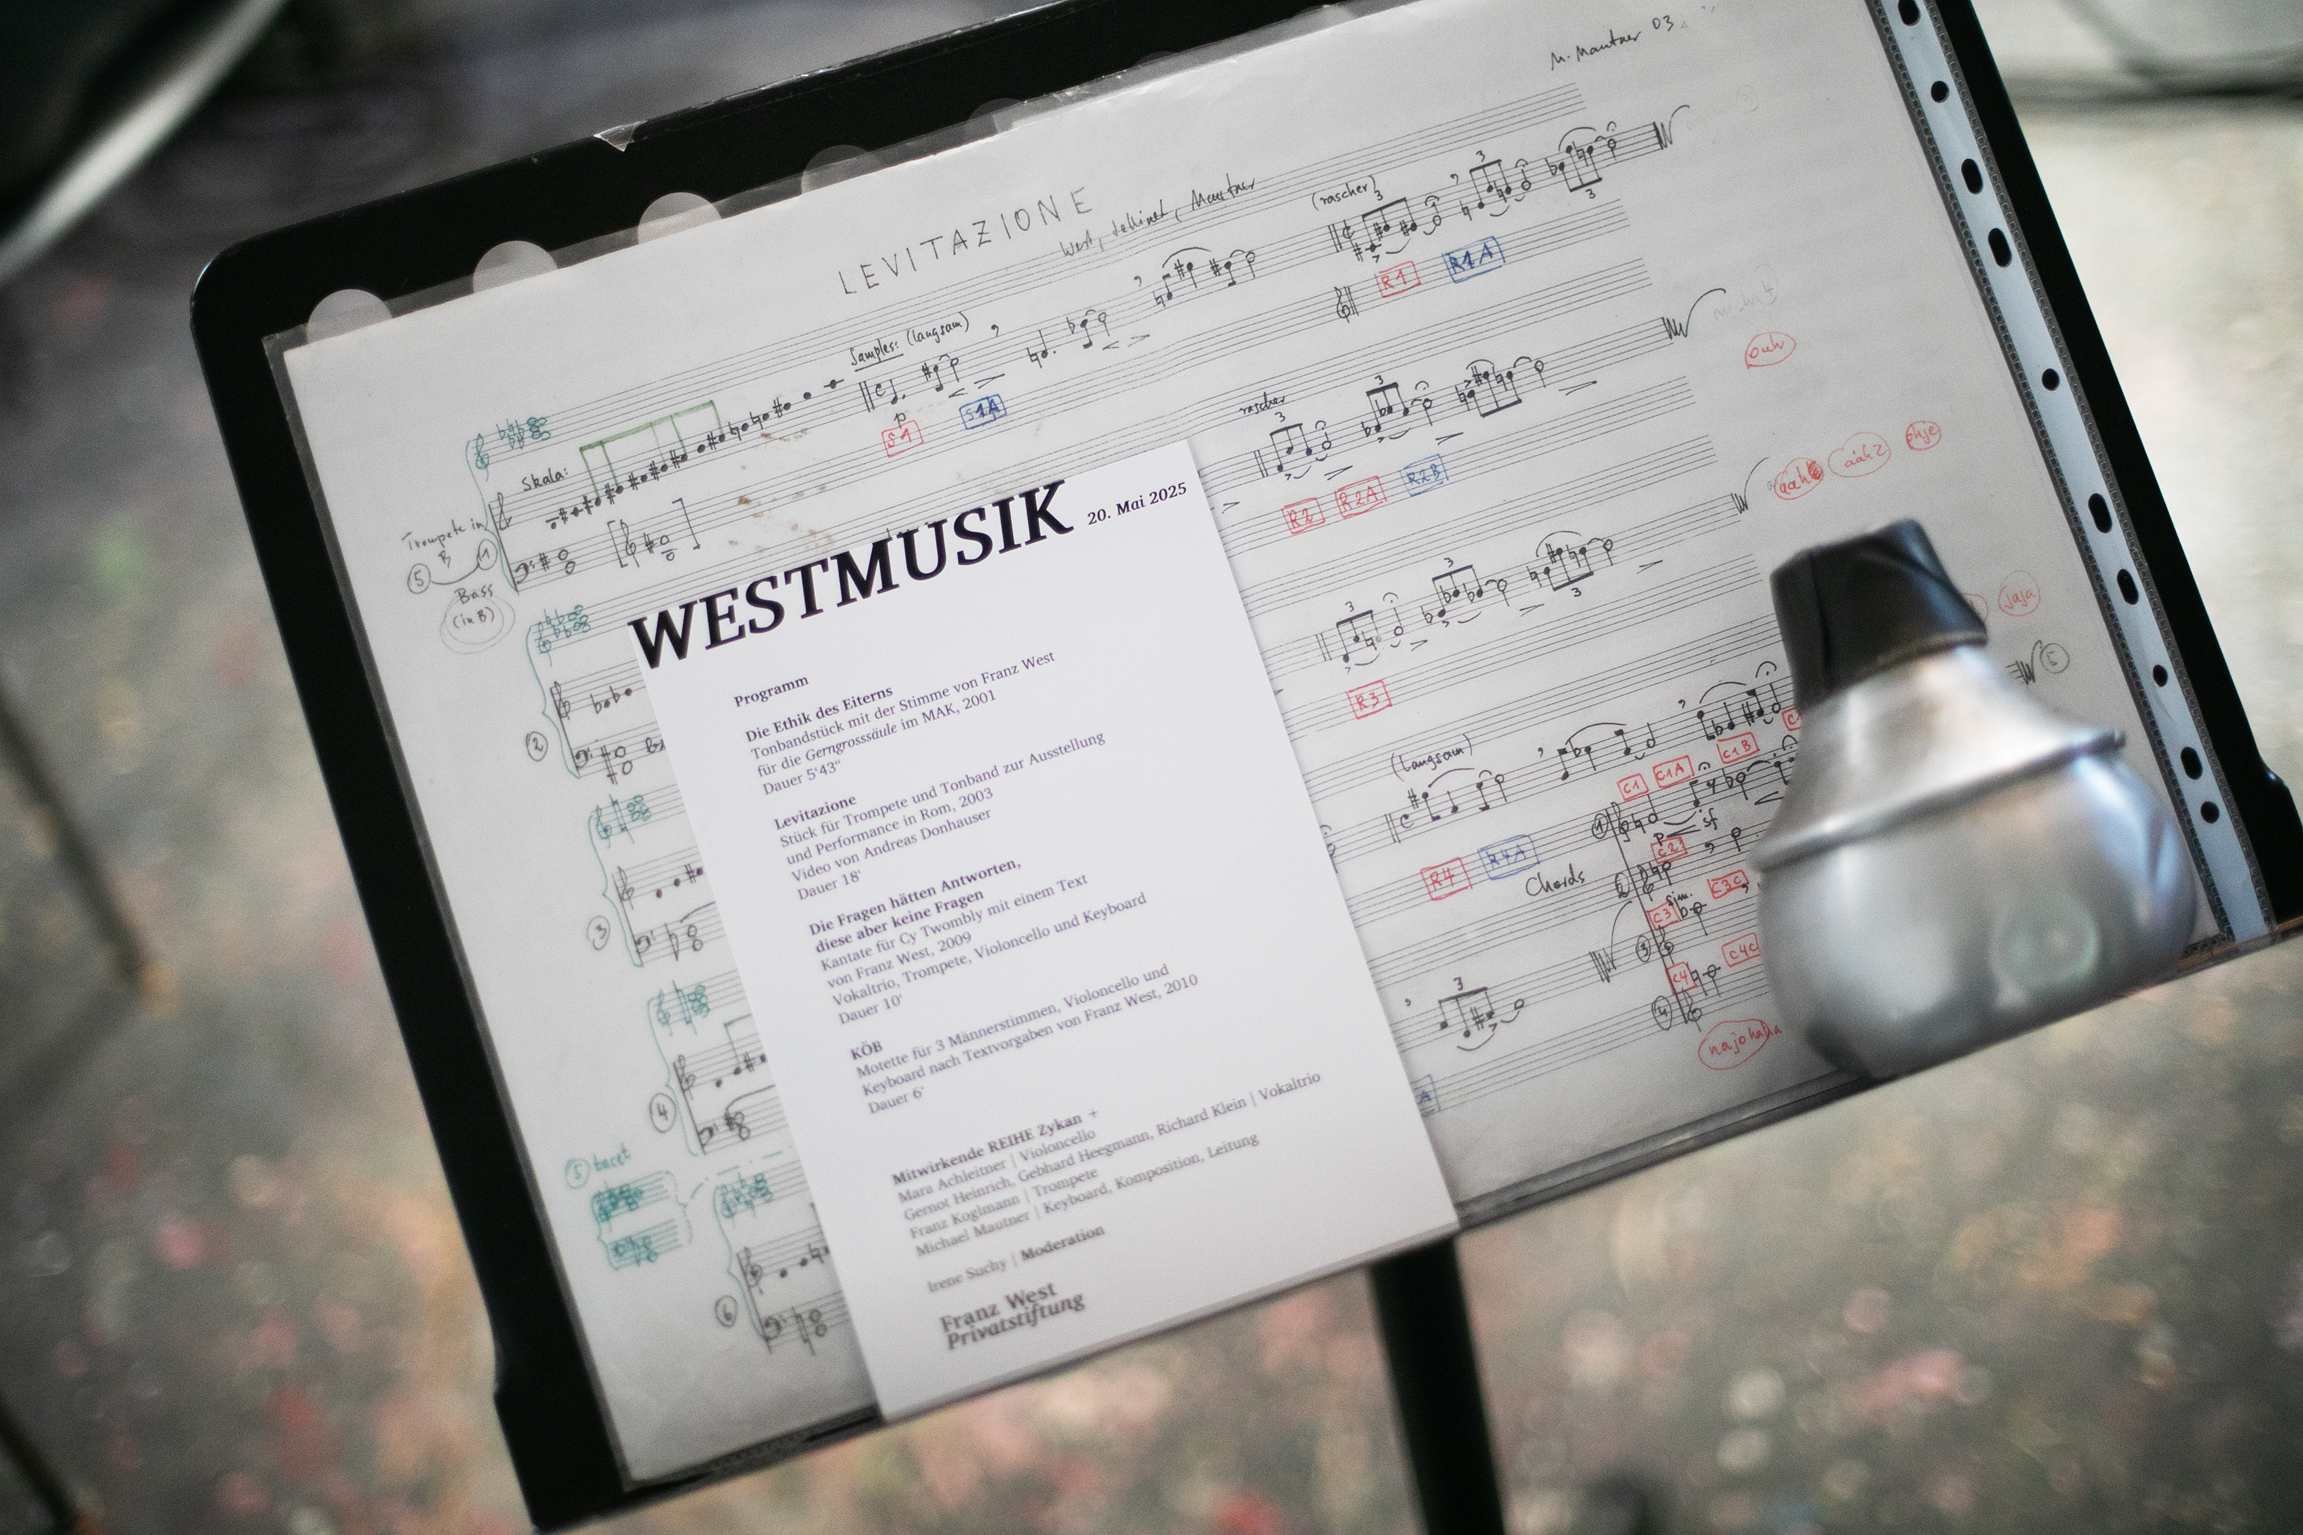 M. Mautner 03
LEVITAZIONE
West, Mautner
Samples: (langsam)
(rascher)
3
3
3
R1
R1A
Skala:
p
S1
S1A
Trompete in
B
5
1
Bass
(in B)
ouh
rascher
3
3
R2
R2A
R2B
aah
aah2
ohje
2
3
3
3
R3
jaja
5
3
(langsam)
R4
R4A
C1
C1A
C1B
Chords
1
p
sf
C2
2
p
sim.
C3
C3C
3
C4
C4C
4
3
najohaha
A
4
5 tacet
6
WESTMUSIK 20. Mai 2025
Programm
Die Ethik des Eiterns
Tonbandstück mit der Stimme von Franz West
für die Gerngrosssäule im MAK, 2001
Dauer 5‘43“
Levitazione
Stück für Trompete und Tonband zur Ausstellung
und Performance in Rom, 2003
Video von Andreas Donhauser
Dauer 18‘
Die Fragen hätten Antworten,
diese aber keine Fragen
Kantate für Cy Twombly mit einem Text
von Franz West, 2009
Vokaltrio, Trompete, Violoncello und Keyboard
Dauer 10‘
KÖB
Motette für 3 Männerstimmen, Violoncello und
Keyboard nach Textvorgaben von Franz West, 2010
Dauer 6‘
Mitwirkende REIHE Zykan +
Mara Achleitner | Violoncello
Gernot Heinrich, Gebhard Heegmann, Richard Klein | Vokaltrio
Franz Koglmann | Trompete
Michael Mautner | Keyboard, Komposition, Leitung
Irene Suchy | Moderation
Franz West
Privatstiftung